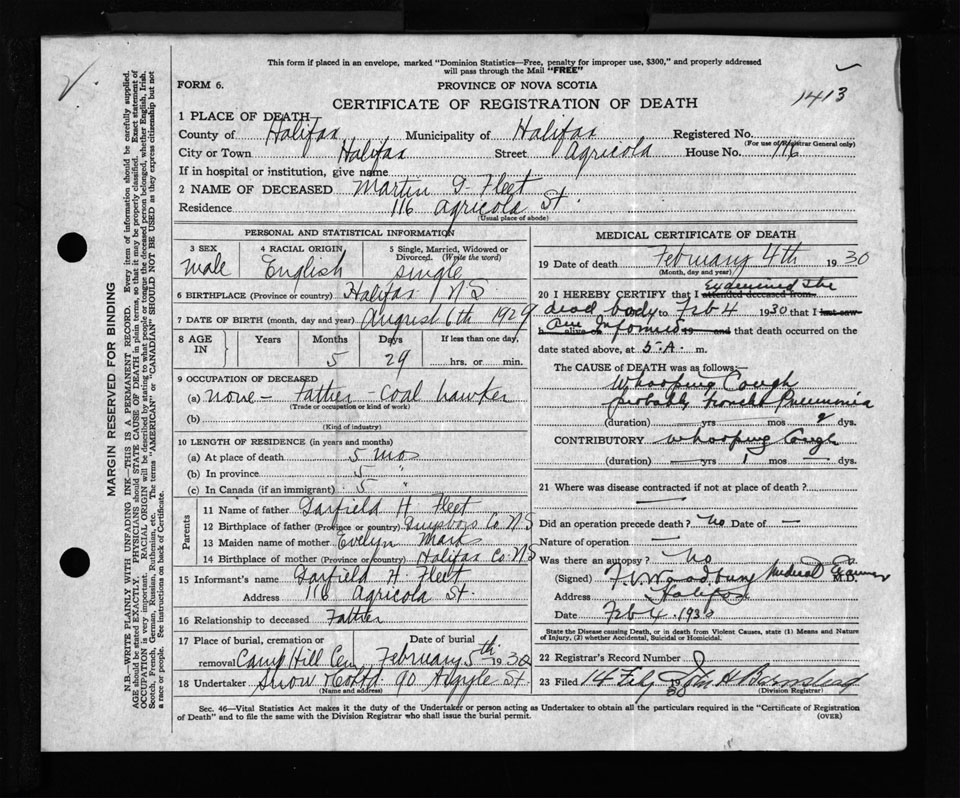 This form if placed in an envelope, marked "Dominion Statistics—Free, penalty for improper use, $300," and properly addressed
will pass through the Mail "FREE"
FORM 6.
PROVINCE OF NOVA SCOTIA
CERTIFICATE OF REGISTRATION OF DEATH
1413
1 PLACE OF DEATH
County of Halifax Municipality of Halifax Registered No.
(For use of Registrar General only)
City or Town Halifax Street Agricola House No. 116
If in hospital or institution, give name
2 NAME OF DECEASED Martin G Fleet
Residence 116 Agricola St.
(Usual place of abode)
PERSONAL AND STATISTICAL INFORMATION
3 SEX 4 RACIAL ORIGIN 5 Single, Married, Widowed or
Divorced. (Write the word)
male English single
6 BIRTHPLACE (Province or country) Halifax N S
7 DATE OF BIRTH (month, day and year) August 6th 1929
8 AGE IN Years Months Days If less than one day,
5 29 hrs. or min.
9 OCCUPATION OF DECEASED
(a) none - Father - Coal hawker
(Trade or occupation or kind of work)
(b)
(Kind of industry)
10 LENGTH OF RESIDENCE (in years and months)
(a) At place of death 5 mos
(b) In province 5 "
(c) In Canada (if an immigrant) 5 "
Parents
11 Name of father Garfield H. Fleet
12 Birthplace of father (Province or country) Guysboro Co. N.S
13 Maiden name of mother Evelyn
14 Birthplace of mother (Province or country) Halifax Co. N.S
15 Informant's name Garfield H. Fleet
Address 116 Agricola St.
16 Relationship to deceased Father
17 Place of burial, cremation or removal Date of burial
Camp Hill Cem. February 5th 1930
18 Undertaker Snow & Co Ltd 90 Argyle St.
(Name and address)
MEDICAL CERTIFICATE OF DEATH
19 Date of death February 4th 1930
(Month, day and year)
20 I HEREBY CERTIFY that I attended deceased from Examined the
dead body to Feb 4 1930 that I last saw
h alive on am Informed 19 and that death occurred on
date stated above, at 5.A. m.
The CAUSE of DEATH was as follows:—
Whooping Cough
probably Broncho Pneumonia
(duration) yrs mos 2 dys.
CONTRIBUTORY whooping Cough
(duration) yrs 1 mos dys.
21 Where was disease contracted if not at place of death?
Did an operation precede death? No Date of —
Nature of operation —
Was there an autopsy? No
(Signed) F. V. Woodbury Medical Examiner
Address Halifax
Date Feb 4. 1930
State the Disease causing Death, or in death from Violent Causes, state (1) Means and Nature
of Injury, (2) whether Accidental, Suicidal or Homicidal.
22 Registrar's Record Number
23 Filed 14 Feby 1930 John H Barnstead
(Division Registrar)
Sec. 46—Vital Statistics Act makes it the duty of the Undertaker or person acting as Undertaker to obtain all the particulars required in the "Certificate of Registration
of Death" and to file the same with the Division Registrar who shall issue the burial permit.
(OVER)
MARGIN RESERVED FOR BINDING
N.B.—WRITE PLAINLY WITH UNFADING INK—THIS IS A PERMANENT RECORD. Every item of information should be carefully supplied.
AGE should be stated EXACTLY. PHYSICIANS should STATE CAUSE OF DEATH in plain terms, so that it may be properly classified. Exact statement of
OCCUPATION is very important. RACIAL ORIGIN will be described by stating to what people or tongue the deceased person belonged, whether English, Irish,
Scotch, French, German, Russian, Ruthenian, etc. The terms "AMERICAN" or "CANADIAN" SHOULD NOT BE USED as they express citizenship but not
a race or people. See instructions on back of Certificate.